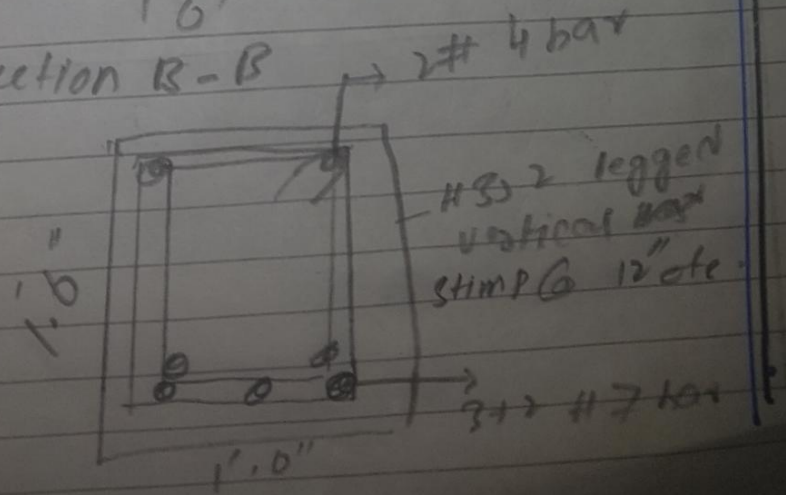 1' 0"
ection B-B
2# 4 bar
#3, 2 legged
vertical
stimp @ 12" ctc.
1'.6"
3+2 #7 bar
1'.0"